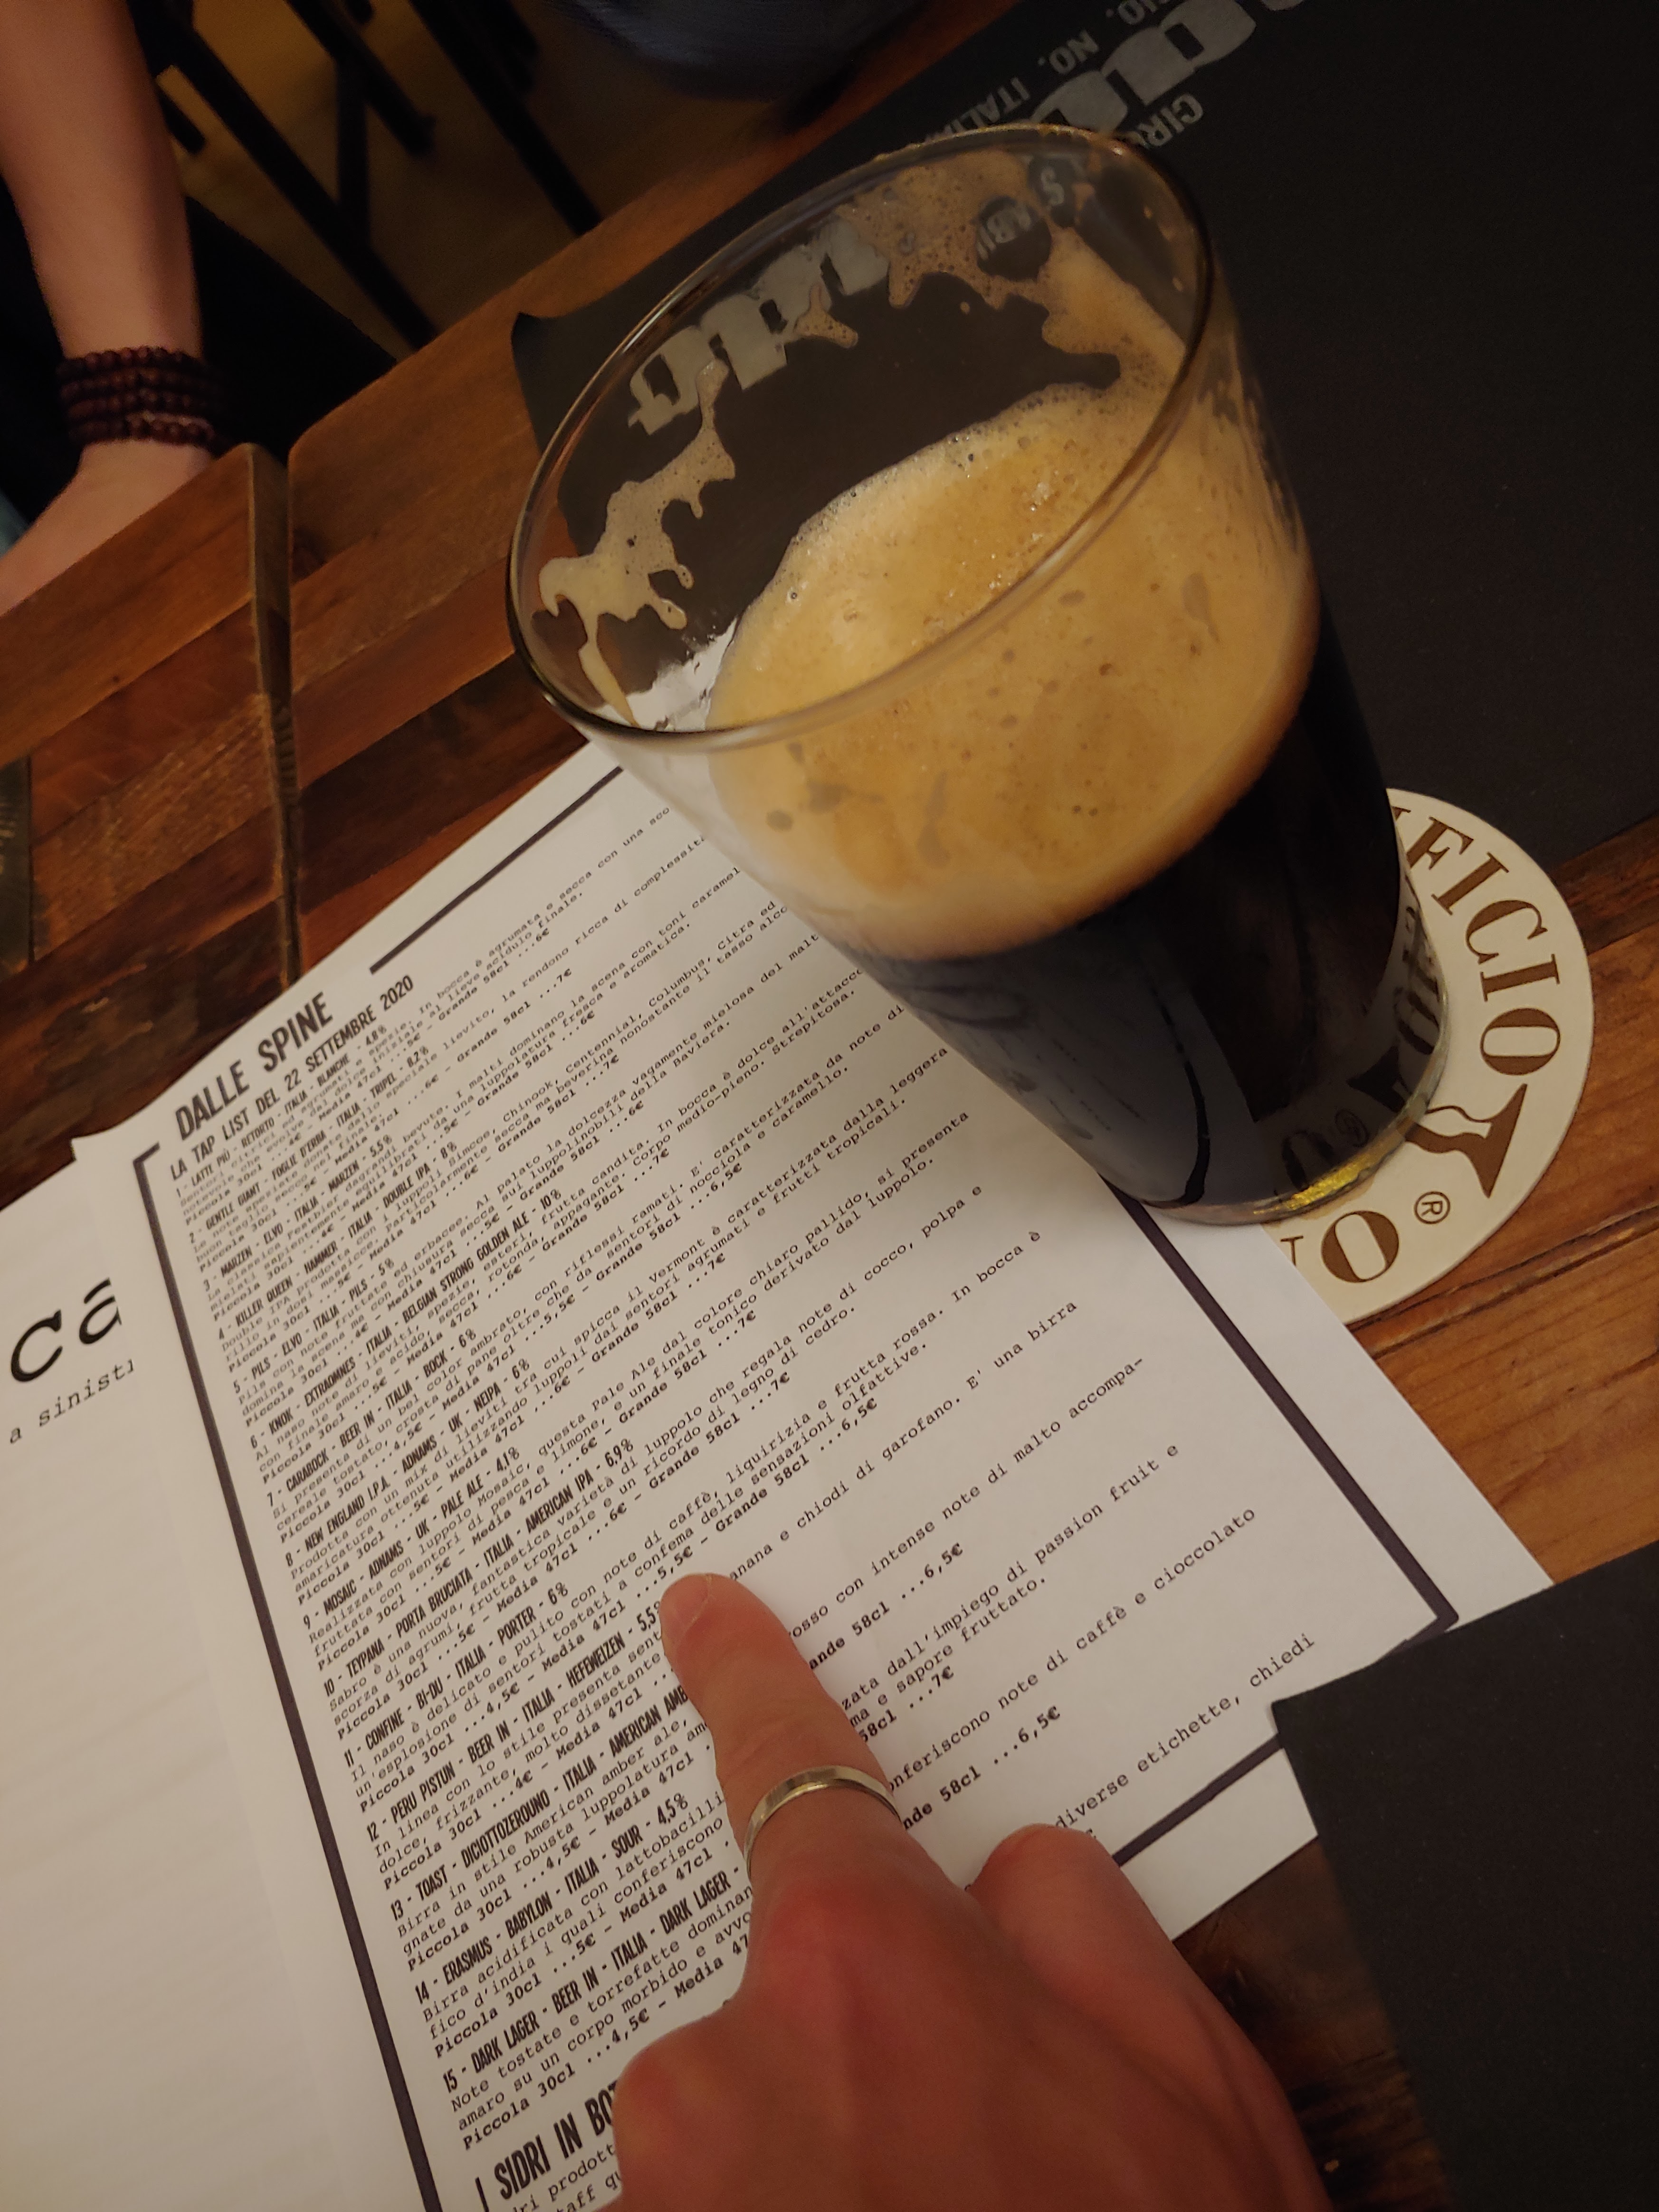 DALLE SPINE
LA TAP LIST DEL 22 SETTEMBRE 2020
1 - LATTE PIÙ - RETORTO - ITALIA - BLANCHE - 4,8%
agrumati e spezie. In bocca è agrumata e secca con una
che evolve dal dolce iniziale al lieve acidulo finale.
Piccola 30cl ...4€ - Media 47cl ...5€ - Grande 58cl ...6€
2 - GENTLE GIANT - FOGLIE D'ERBA - ITALIA - TRIPEL - 8,2%
Le note speziate donate dallo speciale lievito, la rendono ricca di complessità
Piccola 30cl ...5€ - Media 47cl ...6€ - Grande 58cl ...7€
3 - MARZEN - ELVO - ITALIA - MARZEN - 5,5%
bevute. I malti dominano la scena con toni
mielati sapientemente equilibrati da una luppolatura fresca e aromatica.
Piccola 30cl ...4€ - Media 47cl ...5€ - Grande 58cl ...6€
4 - KILLER QUEEN - HAMMER - ITALIA - DOUBLE IPA - 8%
Double IPA prodotta con luppoli Simcoe, Chinook, Centennial, Columbus, Citra ed
in dosi massicce. Particolarmente secca ma beverina nonostante il tasso
Piccola 30cl ...5€ - Media 47cl ...6€ - Grande 58cl ...7€
5 - PILS - ELVO - ITALIA - PILS - 5%
Pils con note fruttate ed erbacee. Al palato la dolcezza vagamente mielosa del malto
domina la scena ma con chiusura secca sui luppolinobili della Baviera.
Piccola 30cl ...4€ - Media 47cl ...5€ - Grande 58cl ...6€
6 - KNOK - EXTRAOMNES - ITALIA - BELGIAN STRONG GOLDEN ALE - 10%
Al naso note di lieviti, spezie, esteri, frutta candita. In bocca è dolce all'attacco
con finale amaro e acido, secca, rotonda, appagante. Corpo medio-pieno. Strepitosa.
Piccola 30cl ...5€ - Media 47cl ...6€ - Grande 58cl ...7€
7 - CARABOCK - BEER IN - ITALIA - BOCK - 6%
Si presenta di un bel color ambrato, con riflessi ramati. E' caratterizzata da note di
cereale tostato, crosta di pane oltre che da sentori di nocciola e caramello.
Piccola 30cl ...4,5€ - Media 47cl ...5,5€ - Grande 58cl ...6,5€
8 - NEW ENGLAND I.P.A. - ADNAMS - UK - NEIPA - 6%
Prodotta con un mix di lieviti tra cui spicca il Vermont è caratterizzata dalla leggera
amaricatura ottenuta utilizzando luppoli dai sentori agrumati e frutti tropicali.
Piccola 30cl ...5€ - Media 47cl ...6€ - Grande 58cl ...7€
9 - MOSAIC - ADNAMS - UK - PALE ALE - 4,1%
Realizzata con luppolo Mosaic, questa Pale Ale dal colore chiaro pallido, si presenta
fruttata con sentori di pesca e limone, e un finale tonico derivato dal luppolo.
Piccola 30cl ...5€ - Media 47cl ...6€ - Grande 58cl ...7€
10 - TEYPANA - PORTA BRUCIATA - ITALIA - AMERICAN IPA - 6,9%
Sabro è una nuova, fantastica varietà di luppolo che regala note di cocco, polpa e
scorza di agrumi, frutta tropicale e un ricordo di legno di cedro.
Piccola 30cl ...5€ - Media 47cl ...6€ - Grande 58cl ...7€
11 - CONFINE - BI-DU - ITALIA - PORTER - 6%
Il naso è delicato e pulito con note di caffè, liquirizia e frutta rossa. In bocca è
un'esplosione di sentori tostati a conferma delle sensazioni olfattive.
Piccola 30cl ...4,5€ - Media 47cl ...5,5€ - Grande 58cl ...6,5€
12 - PERU PISTUN - BEER IN - ITALIA - HEFEWEIZEN - 5,5%
In linea con lo stile presenta anana e chiodi di garofano. E' una birra
dolce, frizzante, molto dissetante
Piccola 30cl ...4€ - Media 47cl
13 - TOAST - DICIOTTOZEROUNO - ITALIA - AMERICAN AMB
Birra in stile American amber ale, osso con intense note di malto accompa-
gnate da una robusta luppolatura
Piccola 30cl ...4,5€ - Media 47cl ande 58cl ...6,5€
14 - ERASMUS - BABYLON - ITALIA - SOUR - 4,5%
Birra acidificata con lattobacilli zata dall'impiego di passion fruit e
fico d'india i quali conferiscono ma e sapore fruttato.
Piccola 30cl ...5€ - Media 47cl 58cl ...7€
15 - DARK LAGER - BEER IN - ITALIA - DARK LAGER -
Note tostate e torrefatte dominan onferiscono note di caffè e cioccolato
amaro su un corpo morbido e avvo
Piccola 30cl ...4,5€ - Media 47 nde 58cl ...6,5€
I SIDRI IN BOT
dri prodott diverse etichette, chiedi
taff
ca
a sinist
FICIO
O
®
NO. ITALI